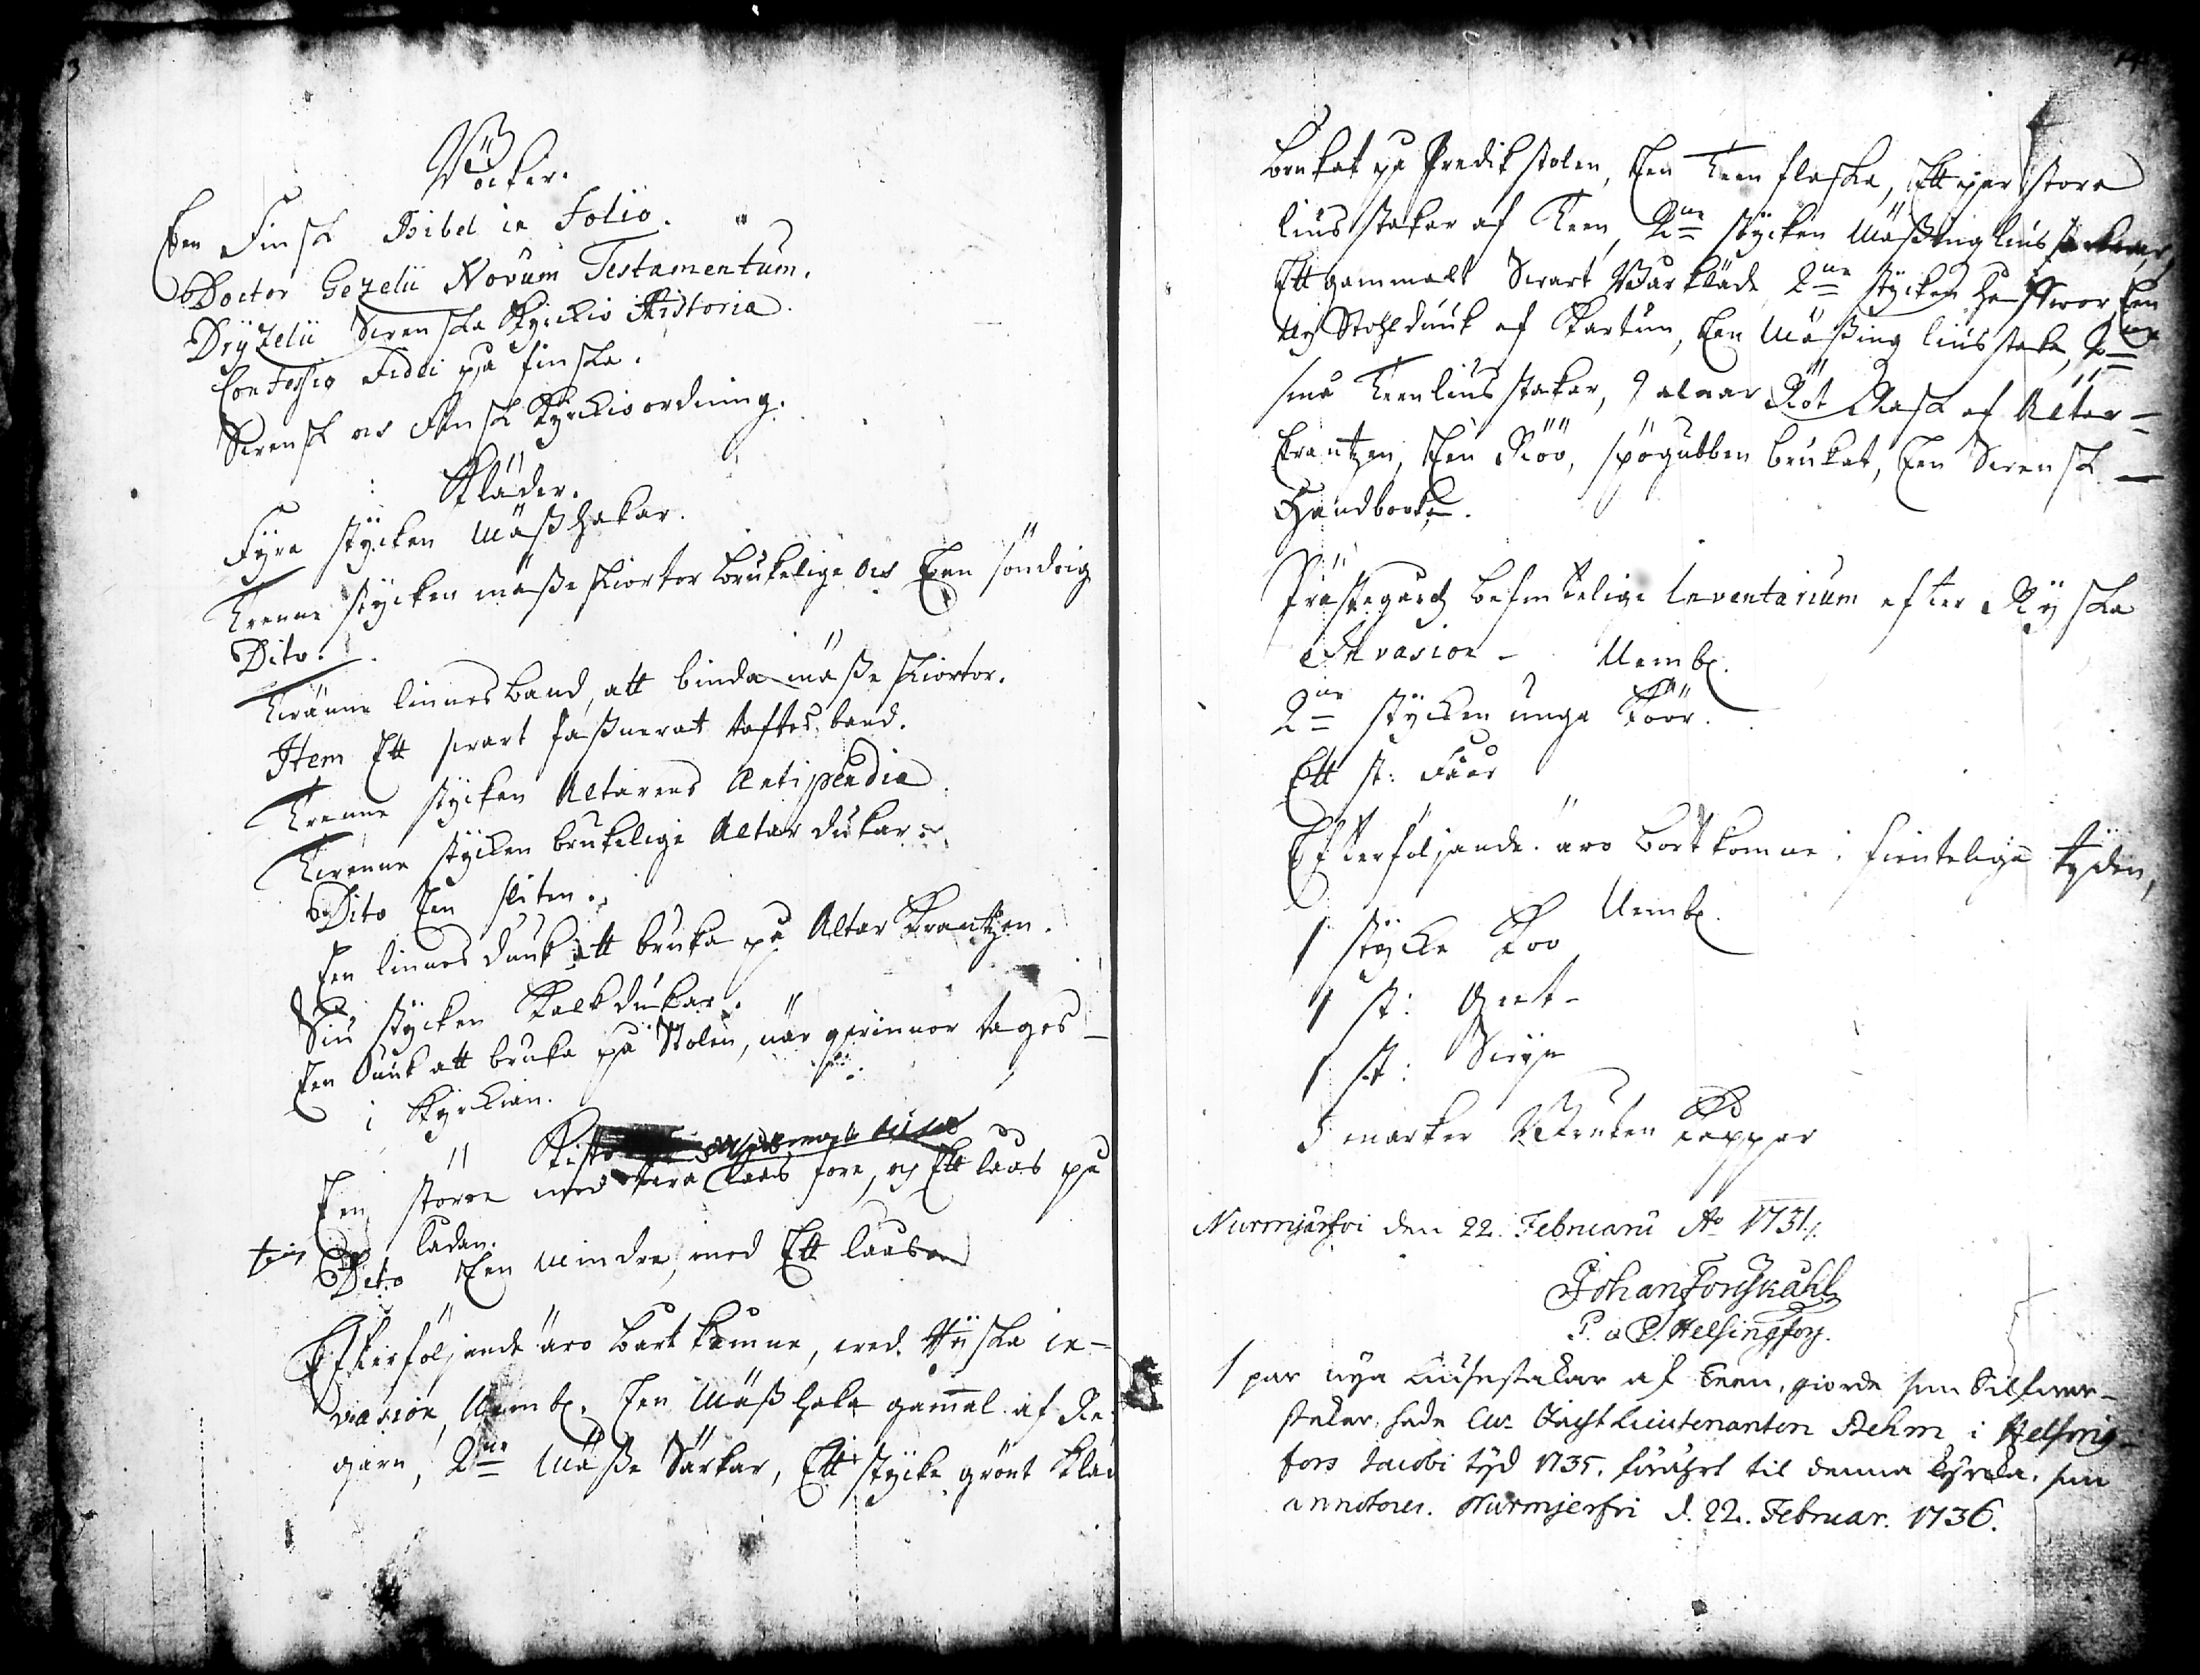 3
Böcker.
Een Finsk Bibel in Folio.
Doctor Gezelii Novum Testamentum.
Dryzelii Swenska Kyrckio Historia.
Confessio Fidei på finska.
Swensk och Finsk Kyrckioordning.
Kläder.
Fyra stycken Mäßhakar.
Trenne stycken mäße skiortor brukelige och Een söndrig
Dito.
Tränne linnes band, att binda mäße skiortor.
Item Ett swart taftes band.
Trenne stycken Altarens Antipendia
Trenne stycken brukelige Altar dukar
Dito Een sliten.
Een linnes duuk att bruka på Altar Krantzen.
Siu stycken Kalkdukar.
Een duuk att bruka på Stolen, när qwinnor tages
i Kyrckian.
Een större med laas före, og Ett laas på
ladan.
Dito Een Mindre, med Ett laas
Efterföljande äro bortkomne, wed Ryska in-
vasion, Nembl. Een Mäßhake gammal af
garn, 2ne Mäße Särkar, Ett stycke grönt
brukat på Predikstolen, Een Teen flaska, Ett par stora
liusstakar af Teen, 2ne stycken Mäßing
Ett gammalt Swart Bårkläde 2ne stycken Een
Ny Stohlduuk af Kartun, Een Mäßing liusstake, 2ne
små Teen liusstakar, 9 alnar Röt af Altar-
krantzen, Een spögubben brukat, Een Swensk
Handbook.
Prästegård befintelige Inventarium efter Ryska
Invasion - Nembl.
2ne stycken unga Köör.
Ett st: Fåår
Efterföljande äro bortkomne i fientelige tyden,
Nembl.
1 stycke Koo
1 st:
1 st: Swijn
5 marker Kopper
Nurmjärfwi den 22. Februarii Ao 1731.
Johan Forsskåhl
P. a P. Helsingfors.
1 par nya liusestakar af teen, giorde som Silfwer-
stakar, hade Lieutenanten Dehm i Helsing-
fors Jacobi tyd 1735. förährt til denna kyrcka. som
annoteres. Nurmjerfvi d. 22. Februar. 1736.